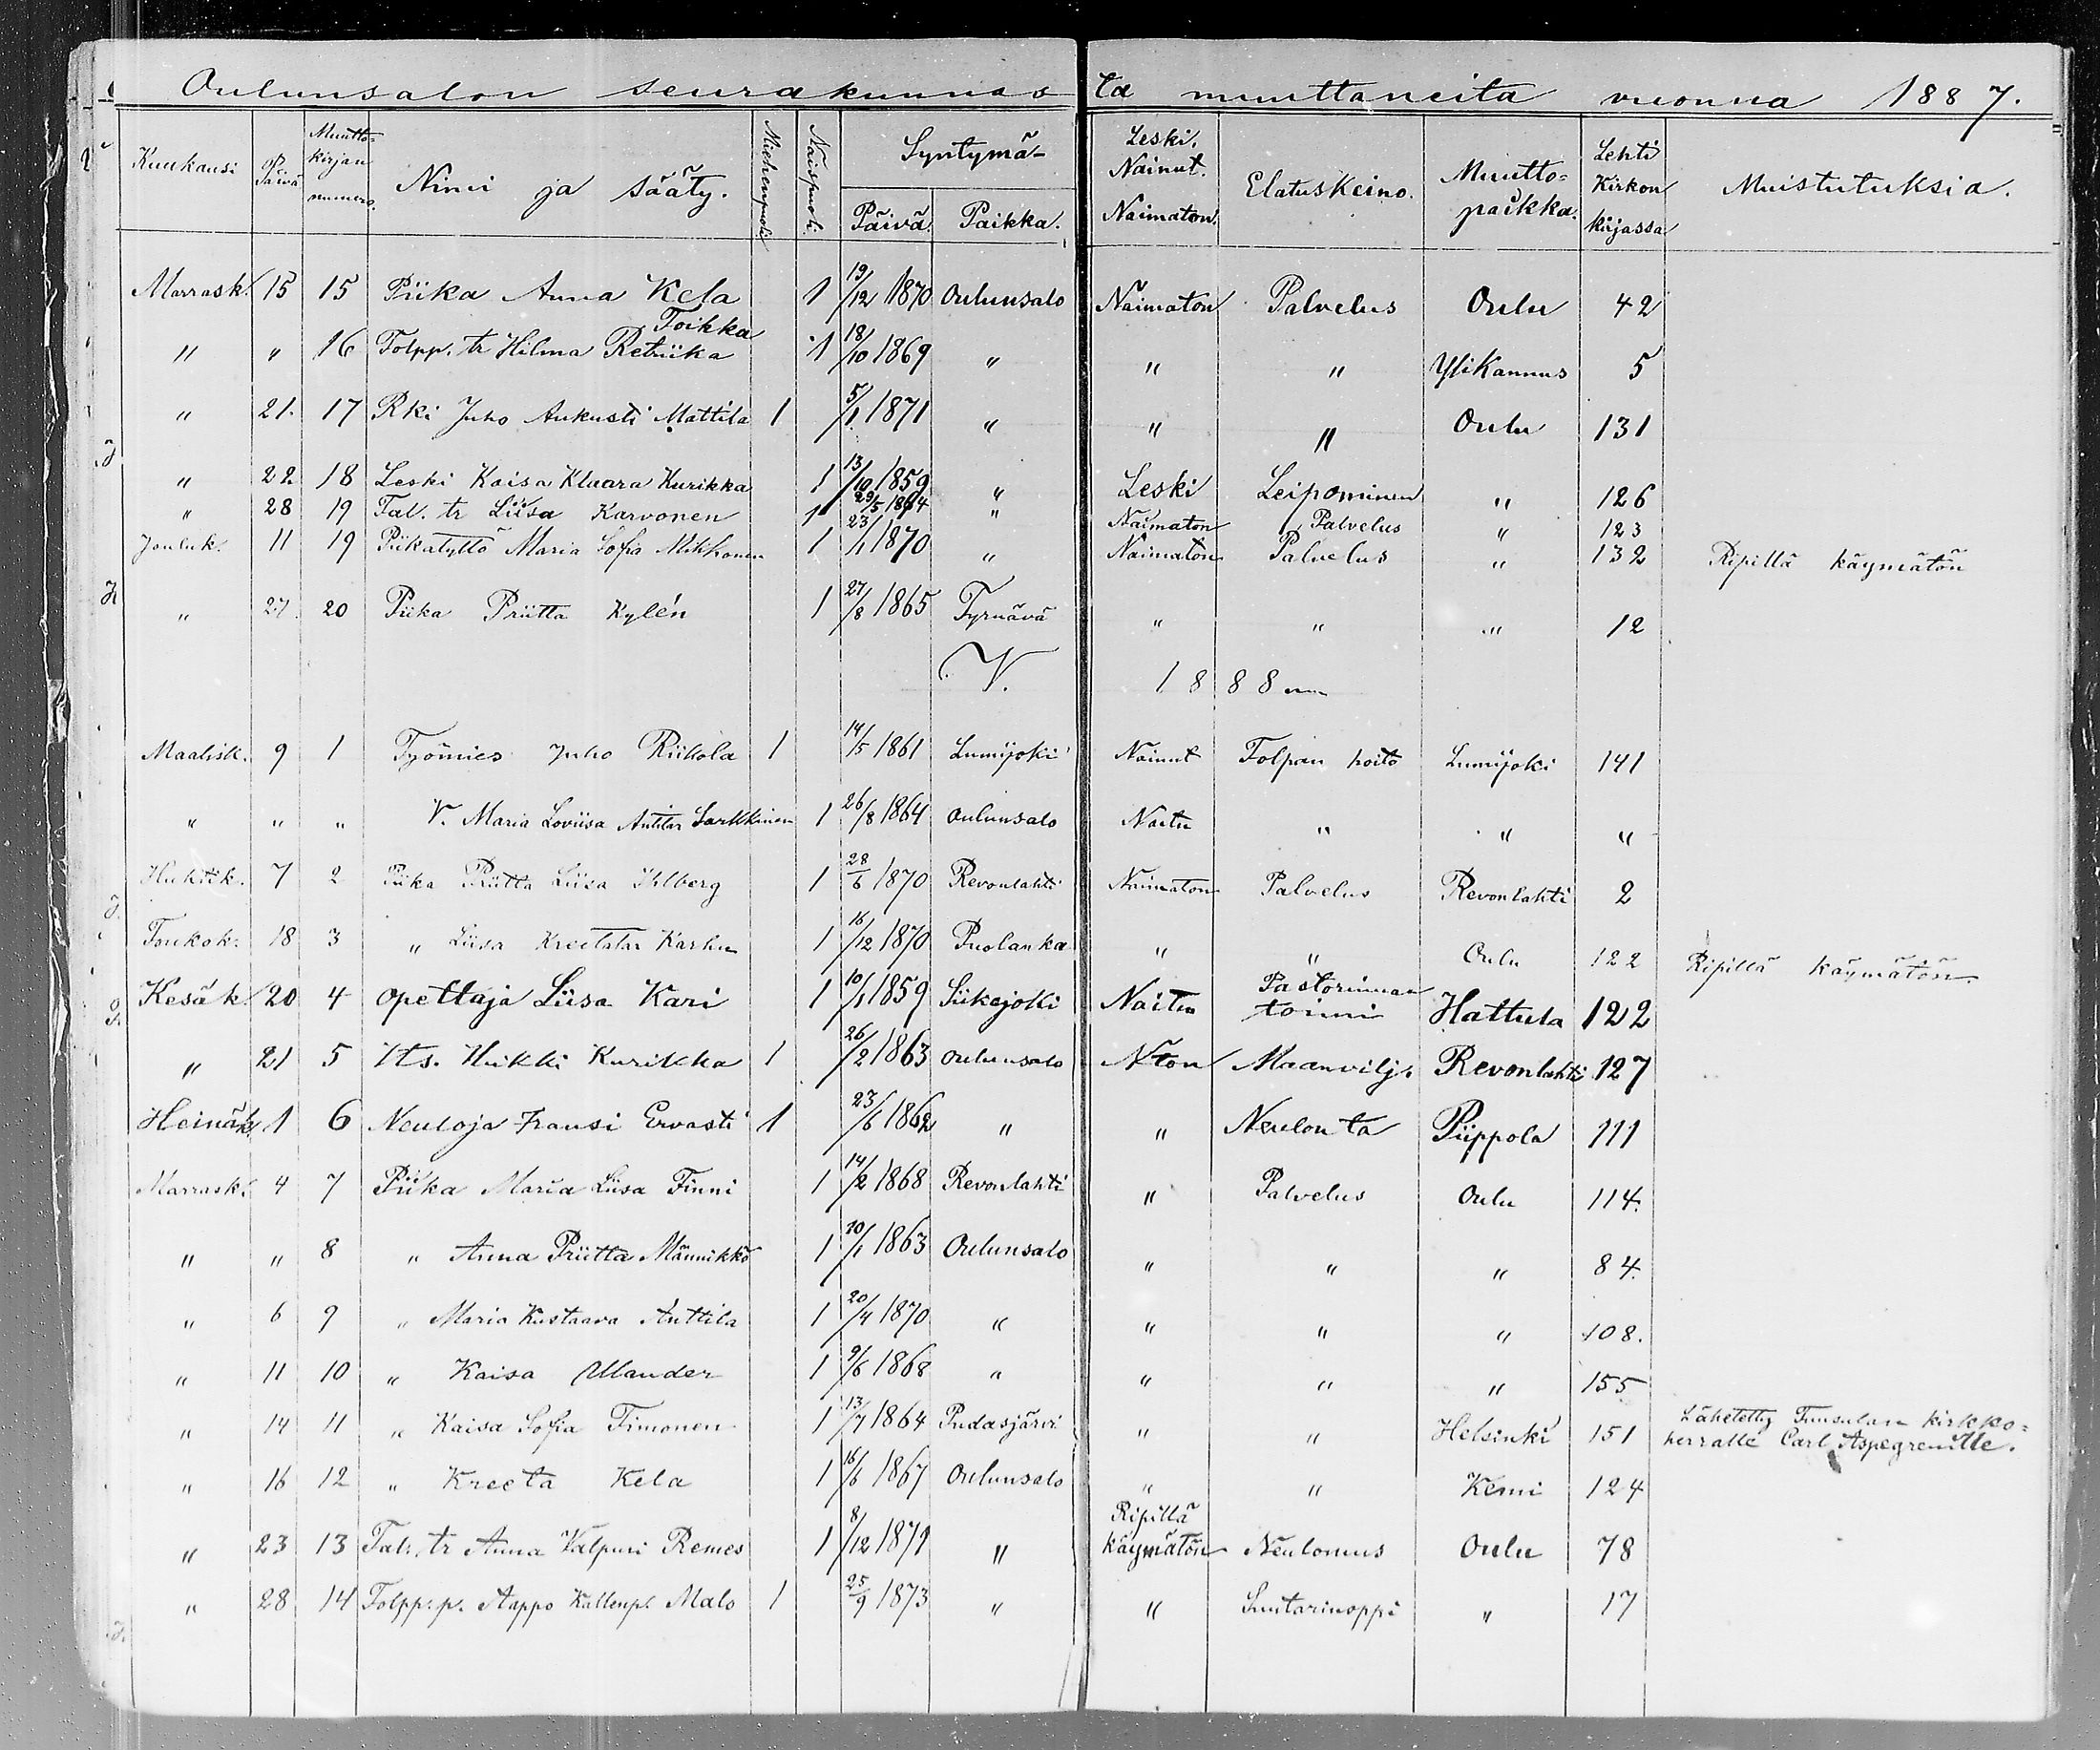 Oulunsalon seurakunnasta muuttaneita vuonna 1887.
Kuukausi Päivä Muutto-kirjan numero. Nimi ja sääty. Miehenpuoli Naispuoli. Syntymä- Päivä. Paikka. Leski. Nainut. Naimaton. Elatuskeino. Muutto-paikka. Lehti Kirkon kirjassa Muistutuksia.
Marrask. 15 15 Piika Anna Kela 1 19/12 1870 Oulunsalo Naimaton Palvelus Oulu 42
Toikka
" " 16 Tolpp. tr Hilma Retriika 1 18/10 1869 " " " Ylikannus 5
" 21. 17 Rki Juho Aukusti Mattila 1 5/1 1871 " " " Oulu 131
" 22 18 Leski Kaisa Klaara Kurikka 1 13/10 1859 " Leski Leipominen " 126
" 28 19 Tal. tr Liisa Karvonen 1 " Naimaton Palvelus " 123
Jouluk. 11 19 Piikatyttö Maria Sofia Mikkonen 1 23/1 1870 " Naimaton Palvelus " 132 Ripillä käymätön
" 27 20 Piika Priitta Kylén 1 27/8 1865 Tyrnävä " " " 12
V. 1888
Maalisk. 9 1 Työmies Juho Riikola 1 14/5 1861 Lumijoki Nainut Tolpan hoito Lumijoki 141
" " " V. Maria Loviisa Antitar Sarkkinen 1 26/8 1864 Oulunsalo Naitu " " "
Huhtik. 7 2 Piika Priitta Liisa Ihlberg 1 28/6 1870 Revonlahti Naimaton Palvelus Revonlahti 2
Toukok. 18 3 " Liisa Kreetatar Karhu 1 16/12 1870 Puolanka " " Oulu 122 Ripillä käymätön.
Kesäk. 20 4 opettaja Liisa Kari 1 10/1 1859 Siikajoki Naitu Pastorinnan toimi Hattula 122
" 21 5 Its. Heikki Kurikka 1 26/2 1863 Oulunsalo Nton Maanvilj. Revonlahti 127
Heinäk. 1 6 Neuloja Fransi Ervasti 1 23/6 1862 " " Neulonta Piippola 111
Marrask. 4 7 Piika Maria Liisa Finni 1 14/2 1868 Revonlahti " Palvelus Oulu 114.
" " 8 " Anna Priitta Männikkö 1 1863 Oulunsalo " " " 84.
" 6 9 " Maria Kustaava Anttila 1 20/4 1870 " " " " 108.
" 11 10 " Kaisa Ulander 1 9/6 1868 " " " " 155
" 14 11 " Kaisa Sofia Timonen 1 13/7 1864 Pudasjärvi " " Helsinki 151 Lähetetty Tuusulan kirkko-
herralle Carl Aspegrenille.
" 16 12 " Kreeta Kela 1 16/6 1867 Oulunsalo " " Kemi 124
" 23 13 Tal. tr Anna Valpuri Remes 1 8/12 1871 " Ripillä käymätön Neulomus Oulu 78
" 28 14 Tolpp. p. Aappo Kallenp. Malo 1 25/9 1873 " " Suutarinoppi " 17